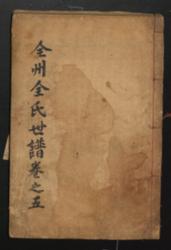 全州全氏世譜卷之五